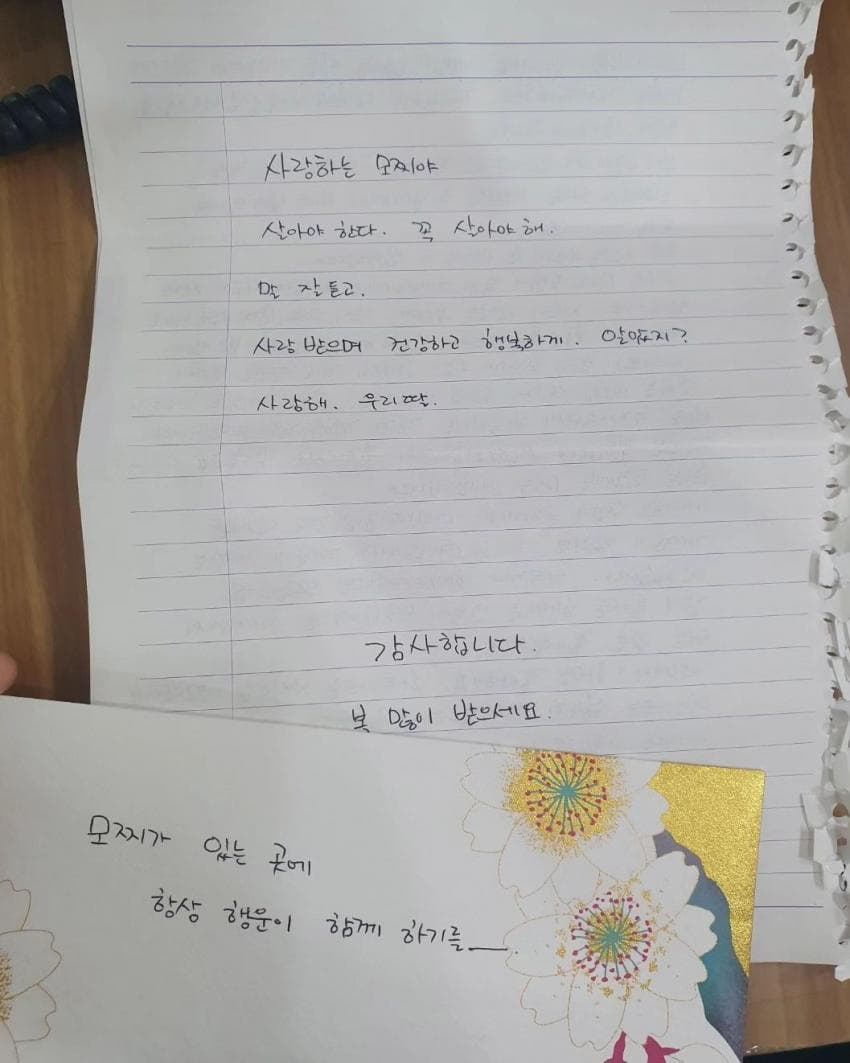 사랑하는 모찌야
살아야 한다. 꼭 살아야해.
말 잘 듣고.
사랑 받으며 건강하고 행복하게. 알았지?
사랑해. 우리딸.
감사합니다.
복 많이 받으세요.
모찌가 있는 곳에
항상 행운이 함께 하기를